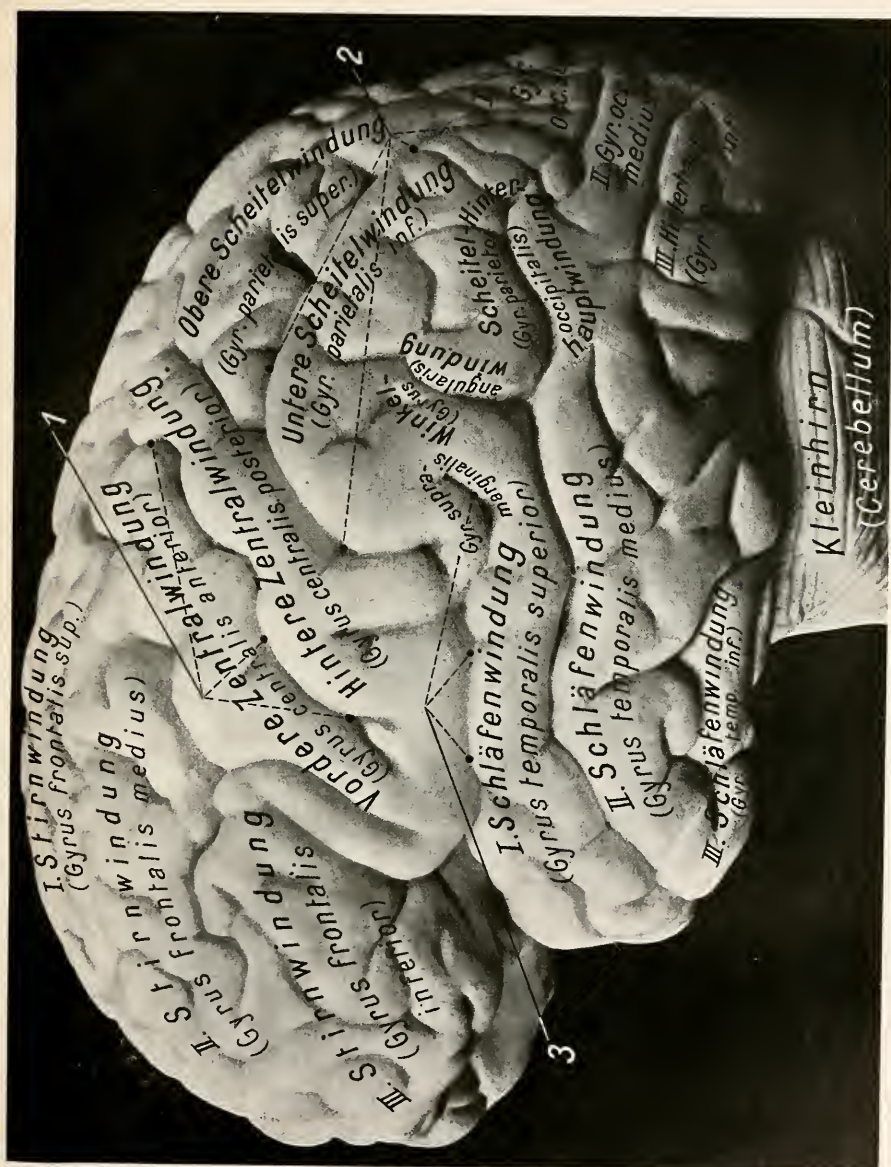 1
2
3
I. Stirnwindung
(Gyrus frontalis sup.)
II. Stirnwindung
(Gyrus frontalis medius)
III. Stirnwindung
(Gyrus frontalis
inferior)
Vordere Zentralwindung
(Gyrus centralis anterior)
Hintere Zentralwindung
(Gyrus centralis posterior)
Obere Scheitelwindung
(Gyr. parietalis super.)
Untere Scheitelwindung
(Gyr. parietalis inf.)
Gyr. supra-
marginalis
Winkel-
(Gyrus
angularis)
windung
Scheitel-Hinter-
(Gyr. parieto
occipitalis)
hauptwindung
I. Schläfenwindung
(Gyrus temporalis superior)
II. Schläfenwindung
(Gyrus temporalis medius)
III. Schläfenwindung
(Gyr. temp. inf.)
I
Gyr.
II. Gyr. occ.
medius
III. Hinterh
(Gyr.
inf.
Kleinhirn
(Cerebellum)